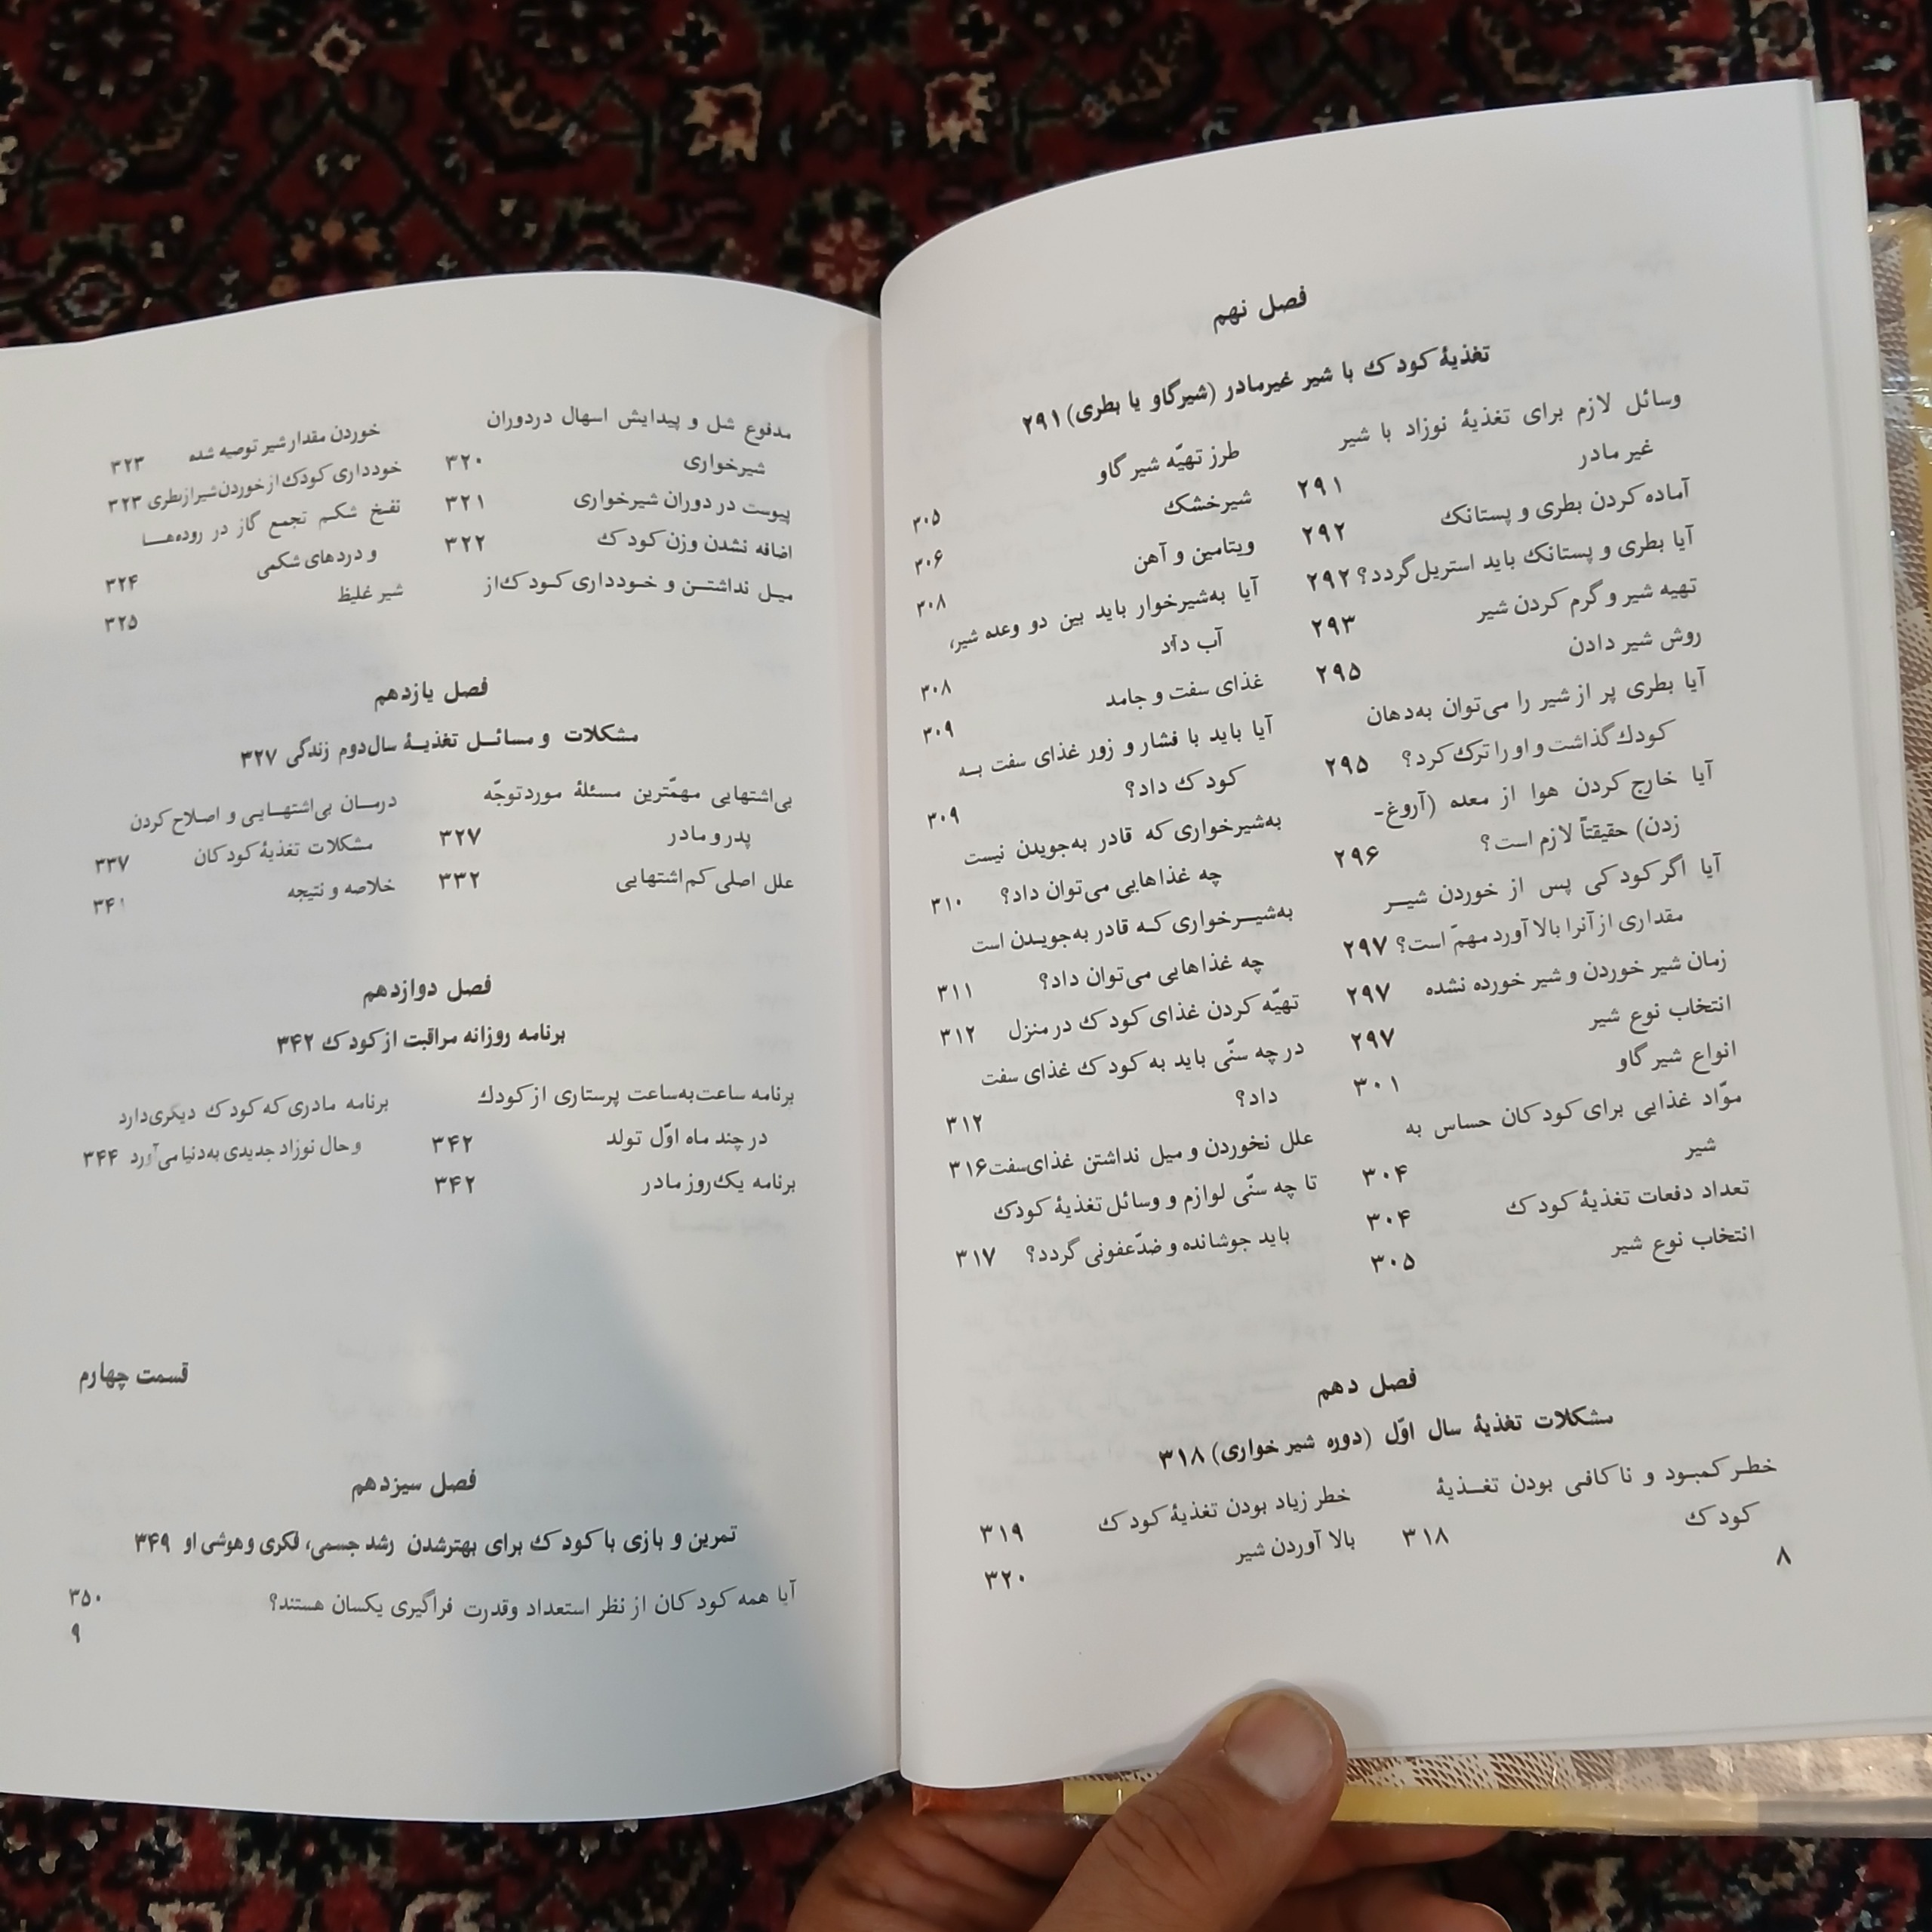 فصل نهم
تغذیهٔ کودک با شیر غیرمادر (شیرگاو یا بطری) ۲۹۱
وسائل لازم برای تغذیهٔ نوزاد با شیر
غیر مادر ۲۹۱
آماده کردن بطری و پستانک ۲۹۲
آیا بطری و پستانک باید استریل گردد؟ ۲۹۲
تهیه شیر و گرم کردن شیر ۲۹۳
روش شیر دادن ۲۹۵
آیا بطری پر از شیر را می‌توان به‌دهان
کودک گذاشت و او را ترک کرد؟ ۲۹۵
آیا خارج کردن هوا از معده (آروغ-
زدن) حقیقتاً لازم است؟ ۲۹۶
آیا اگر کودکی پس از خوردن شیر
مقداری از آنرا بالا آورد مهمّ است؟ ۲۹۷
زمان شیر خوردن و شیر خورده نشده ۲۹۷
انتخاب نوع شیر ۲۹۷
انواع شیر گاو ۳۰۱
موّاد غذایی برای کودکان حساس به
شیر ۳۰۴
تعداد دفعات تغذیهٔ کودک ۳۰۴
انتخاب نوع شیر ۳۰۵
طرز تهیّه شیر گاو ۳۰۵
شیرخشک ۳۰۶
ویتامین و آهن ۳۰۸
آیا به‌شیرخوار باید بین دو وعده شیر،
آب داد ۳۰۸
غذای سفت و جامد ۳۰۹
آیا باید با فشار و زور غذای سفت به
کودک داد؟ ۳۰۹
به‌شیرخواری که قادر به‌جویدن نیست
چه غذاهایی می‌توان داد؟ ۳۱۰
به‌شیرخواری که قادر به‌جویدن است
چه غذاهایی می‌توان داد؟ ۳۱۱
تهیّه کردن غذای کودک در منزل ۳۱۲
در چه سنّی باید به کودک غذای سفت
داد؟ ۳۱۲
علل نخوردن و میل نداشتن غذای‌سفت ۳۱۶
تا چه سنّی لوازم و وسائل تغذیهٔ کودک
باید جوشانده و ضدّعفونی گردد؟ ۳۱۷
فصل دهم
مشکلات تغذیهٔ سال اوّل (دوره شیر خواری) ۳۱۸
خطر کمبود و ناکافی بودن تغذیهٔ
کودک ۳۱۸
خطر زیاد بودن تغذیهٔ کودک ۳۱۹
بالا آوردن شیر ۳۲۰
۸
مدفوع شل و پیدایش اسهال در دوران
شیرخواری ۳۲۰
پیوست در دوران شیرخواری ۳۲۱
اضافه نشدن وزن کودک ۳۲۲
میل نداشتن و خودداری کودک از
خوردن مقدار شیر توصیه شده ۳۲۳
خودداری کودک از خوردن شیر از بطری ۳۲۳
نفخ شکم تجمع گاز در روده‌ها
و دردهای شکمی ۳۲۴
شیر غلیظ ۳۲۵
فصل یازدهم
مشکلات و مسائل تغذیهٔ سال دوم زندگی ۳۲۷
بی‌اشتهایی مهمّترین مسئلهٔ مورد توجّه
پدر و مادر ۳۲۷
علل اصلی کم اشتهایی ۳۳۲
درمان بی‌اشتهایی و اصلاح کردن
مشکلات تغذیهٔ کودکان ۳۳۷
خلاصه و نتیجه ۳۴۱
فصل دوازدهم
برنامه روزانه مراقبت از کودک ۳۴۲
برنامه ساعت‌به‌ساعت پرستاری از کودک
در چند ماه اوّل تولد ۳۴۲
برنامه یک روز مادر ۳۴۲
برنامه مادری که کودک دیگری دارد
و حال نوزاد جدیدی به‌دنیا می‌آورد ۳۴۴
قسمت چهارم
فصل سیزدهم
تمرین و بازی با کودک برای بهتر شدن رشد جسمی، فکری و هوشی او ۳۴۹
آیا همه کودکان از نظر استعداد و قدرت فراگیری یکسان هستند؟ ۳۵۰
۹